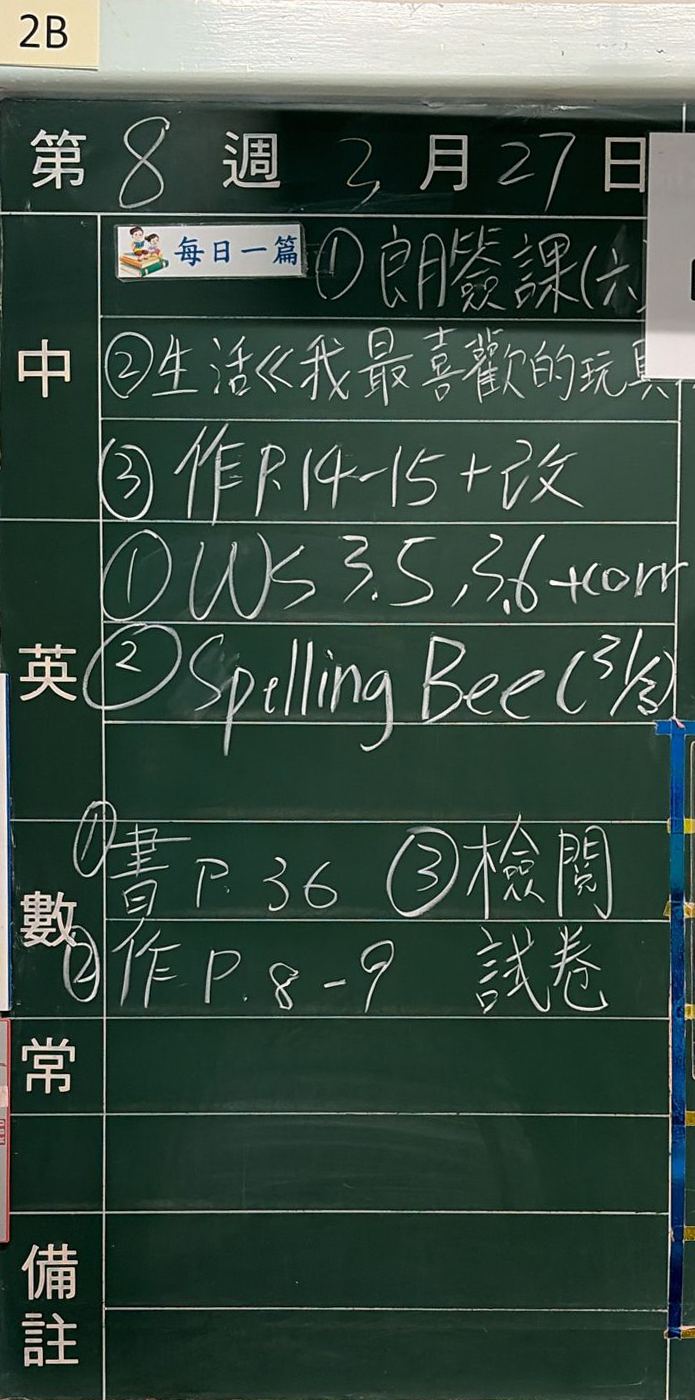 2B
第 8 週 3 月 27 日
中
每日一篇 ① 朗簽課(六
② 生活《我最喜歡的玩具
③ 作P.14-15+改
英
① WS 3.5, 3.6 +corr
② Spelling Bee (31/3)
數
① 書 P. 36 ③ 檢閱
② 作 P. 8-9 試卷
常
備註